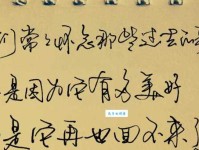 们常常怀念那些过去的
是因为它有多美好
是它再也回不来了